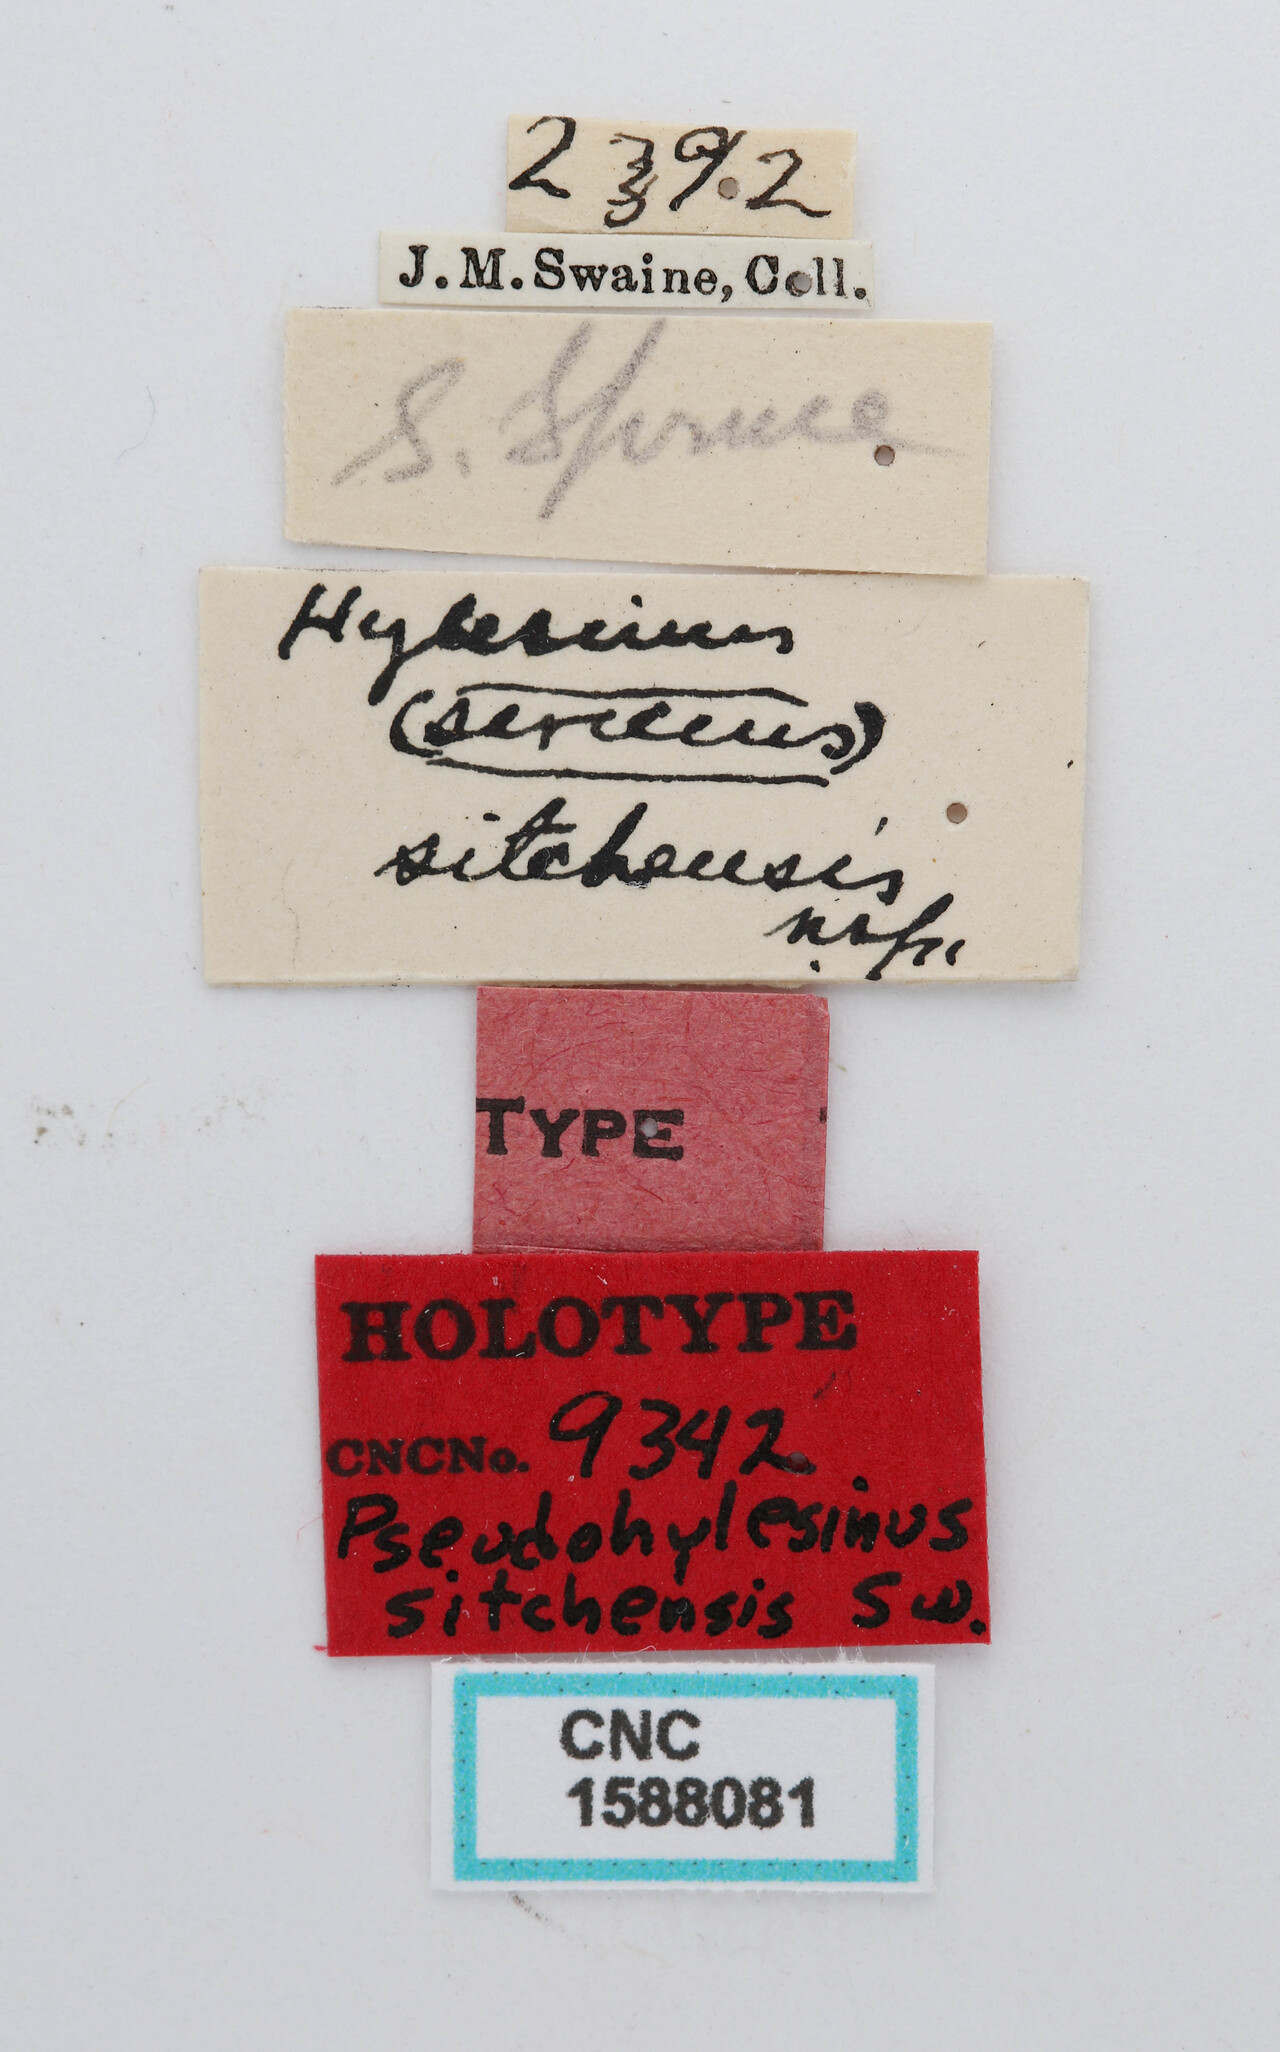 2392
J. M. Swaine, Coll.
S. Spruce
Hylesinus
(sericeus)
sitchensis
n. sp.
TYPE
HOLOTYPE
CNC No. 9342
Pseudohylesinus
sitchensis Sw.
CNC
1588081